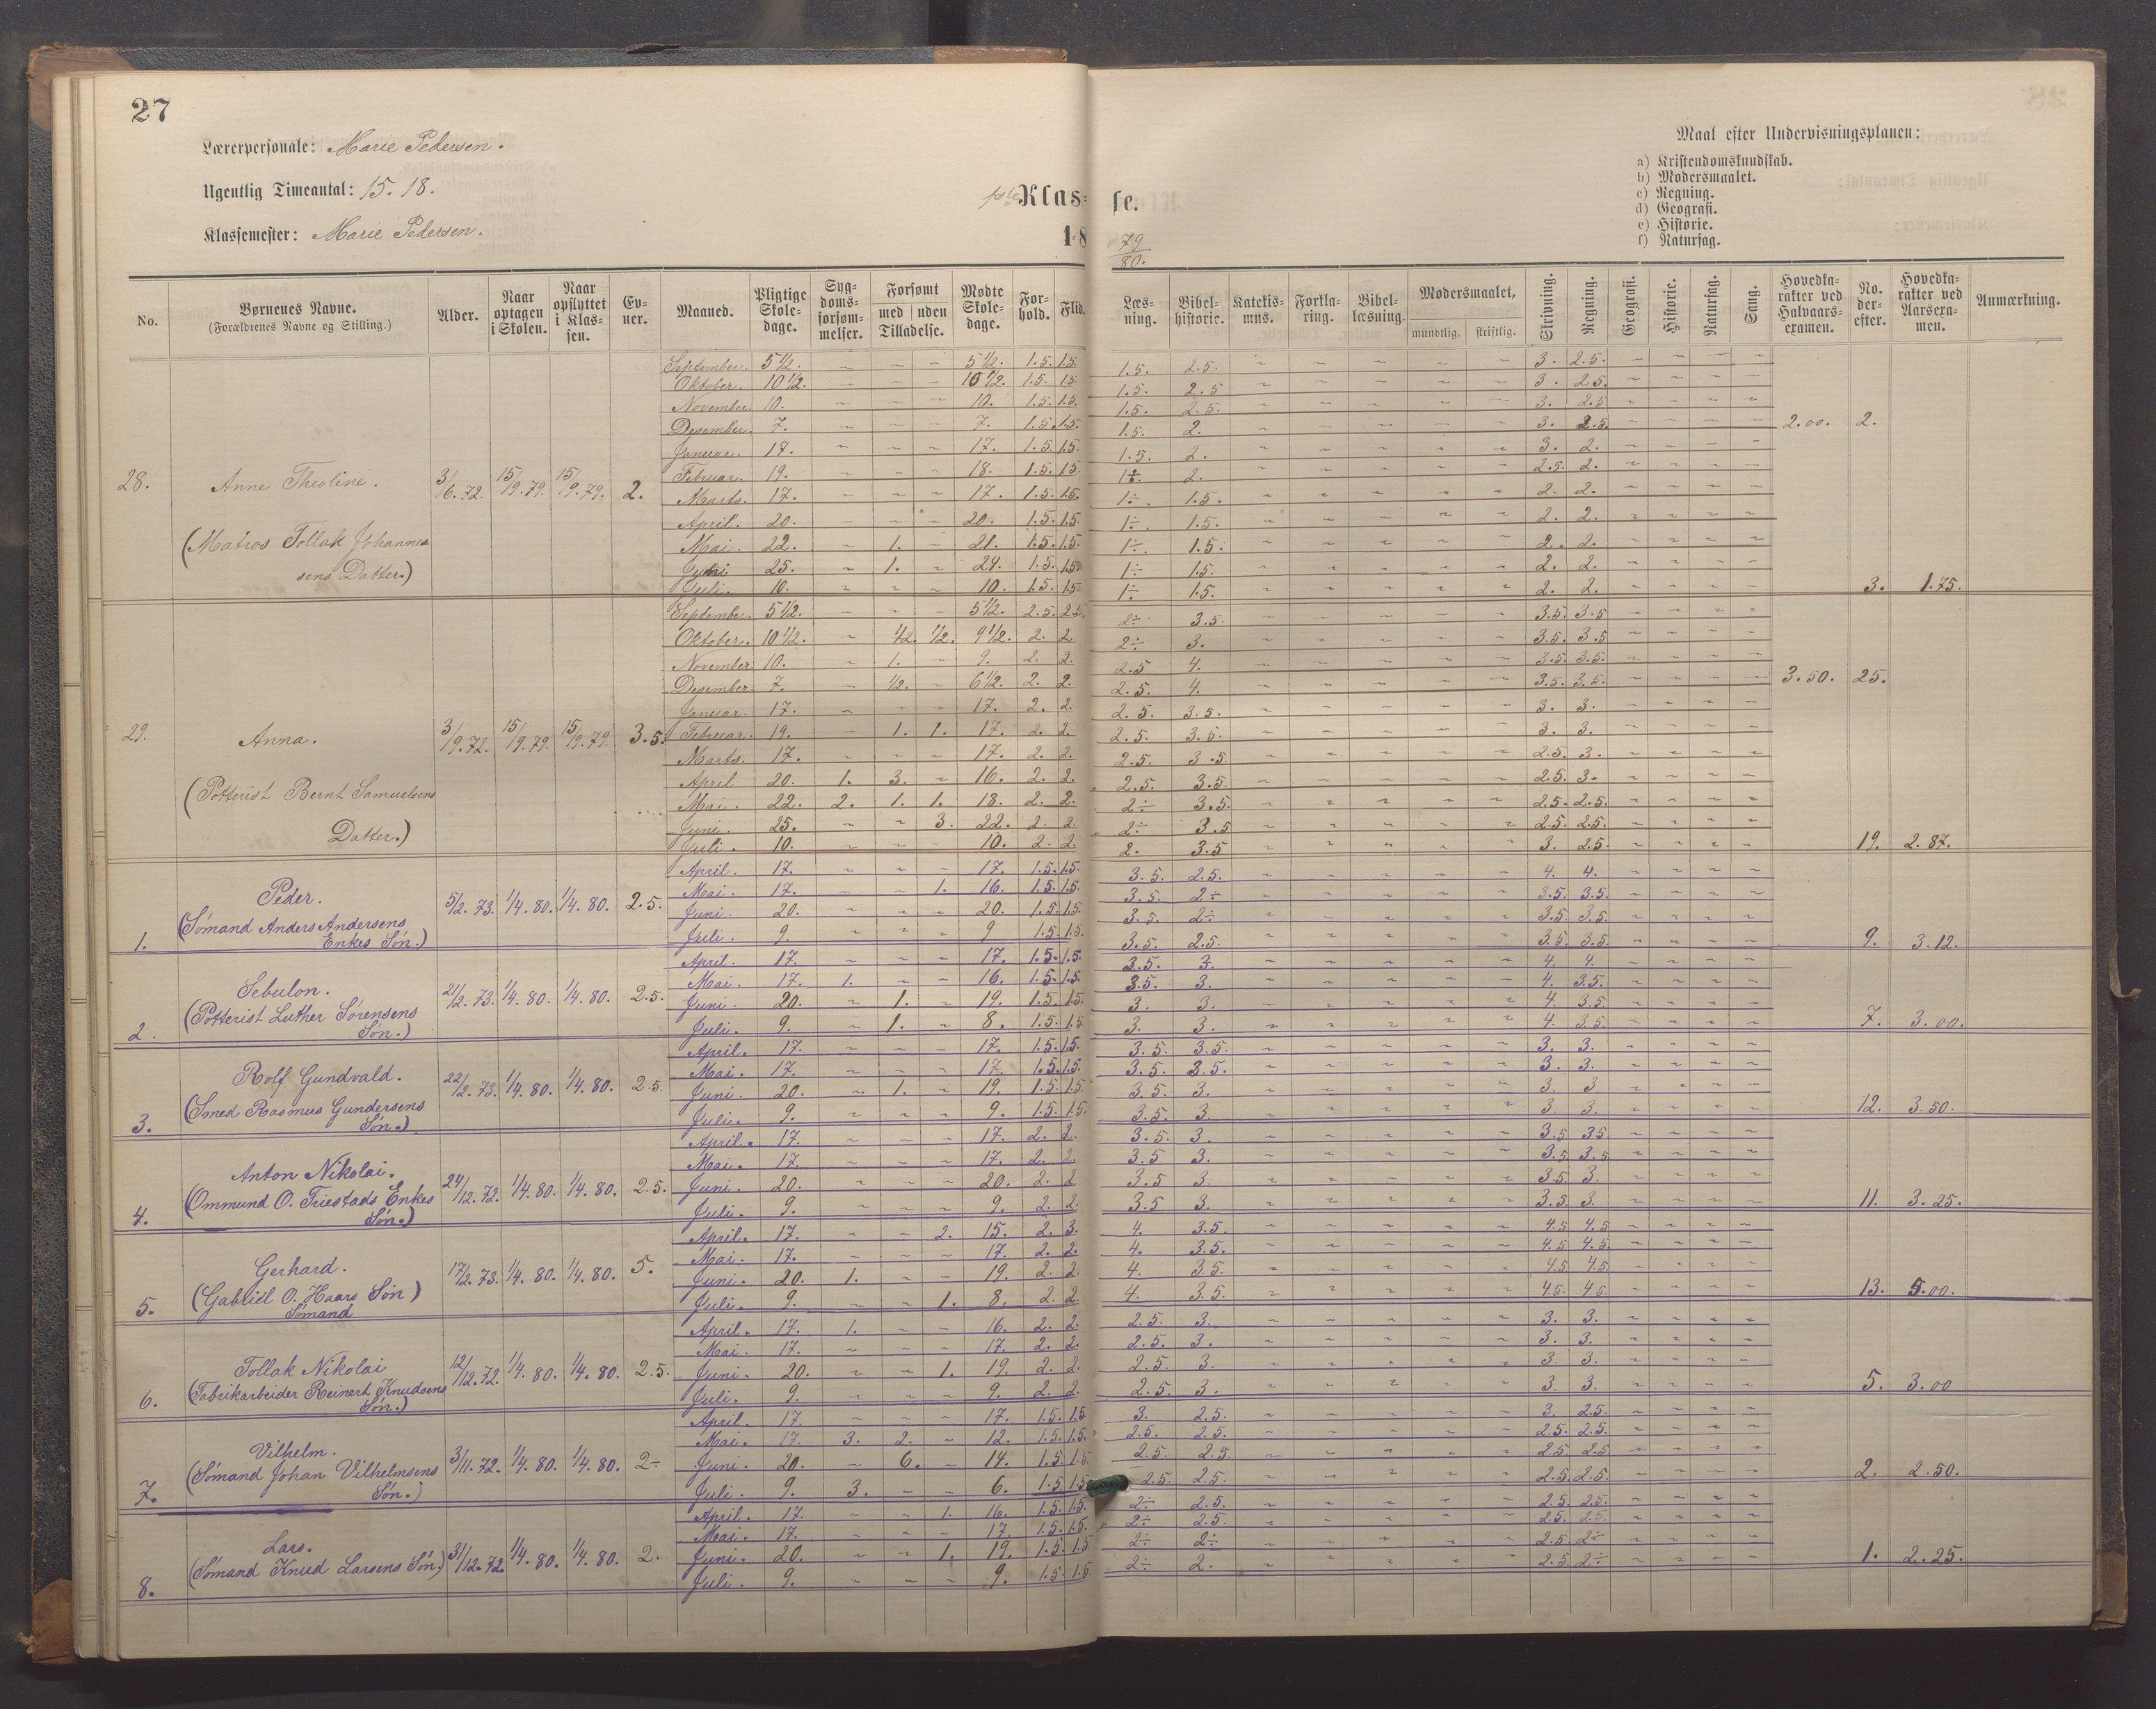 27
Lærerpersonale: Marie Pedersen.
Ugentlig Timeantal: 15. 18.
Klassemester: Marie Pedersen.
1ste Klas- se.
18 79/80.
Maal efter Undervisningsplanen:
a) Kristendomskundskab.
b) Modersmaalet.
c) Regning.
d) Geografi.
e) Historie.
f) Naturfag.
No. | Børnenes Navne. (Forældrenes Navne og Stilling.) | Alder. | Naar optagen i Skolen. | Naar opflyttet i Klassen. | Evner. | Maaned. | Pligtige Skoledage. | Sygdomsforsømmelser. | Forsømt med / uden Tilladelse. | Mødte Skoledage. | Forhold. | Flid. | Læsning. | Bibelhistorie. | Katekismus. | Forklaring. | Bibellæsning. | Modersmaalet, mundtlig. skriftlig. | Skrivning. | Regning. | Geografi. | Historie. | Naturfag. | Sang. | Hovedkarakter ved Halvaarsexamen. | No. derefter. | Hovedkarakter ved Aarsexamen. | Anmærkning.
28. Anne Theoline. (Matros Tollak Johannessens Datter.) 3/6.72. 15/9.79. 15/9.79. 2.
September. 5 1/2. ~ ~ ~ 5 1/2. 1.5. 1.5. 1.5. 2.5. ~ ~ ~ ~ ~ 3. 2.5. ~ ~ ~ ~
Oktober. 10 1/2. ~ ~ ~ 10 1/2. 1.5. 1.5. 1.5. 2.5 ~ ~ ~ ~ ~ 3. 2.5. ~ ~ ~ ~
November. 10. ~ ~ ~ 10. 1.5. 1.5. 1.5. 2.5. ~ ~ ~ ~ ~ 3. 2.5. ~ ~ ~ ~
Desember. 7. ~ ~ ~ 7. 1.5. 1.5. 1.5. 2. ~ ~ ~ ~ ~ 3. 2.5. ~ ~ ~ ~ 2.00. 2.
Januar. 17. ~ ~ ~ 17. 1.5. 1.5. 1.5. 2. ~ ~ ~ ~ ~ 3. 2. ~ ~ ~ ~
Februar. 19. ~ ~ ~ 18. 1.5. 1.5. 1÷. 2. ~ ~ ~ ~ ~ 2.5. 2. ~ ~ ~ ~
Marts. 17. ~ ~ ~ 17. 1.5. 1.5. 1÷. 1.5. ~ ~ ~ ~ ~ 2. 2. ~ ~ ~ ~
April. 20. ~ ~ ~ 20. 1.5. 1.5. 1÷. 1.5. ~ ~ ~ ~ ~ 2. 2. ~ ~ ~ ~
Mai. 22. ~ 1. ~ 21. 1.5. 1.5. 1÷. 1.5. ~ ~ ~ ~ ~ 2. 2. ~ ~ ~ ~
Juni 25. ~ 1. ~ 24. 1.5. 1.5. 1÷. 1.5. ~ ~ ~ ~ ~ 2. 2. ~ ~ ~ ~
Juli. 10. ~ ~ ~ 10. 1.5. 1.5. 1÷. 1.5. ~ ~ ~ ~ ~ 2. 2. ~ ~ ~ ~ 3. 1.75.
29. Anna. (Potterist Bernt Samuelsens Datter.) 3/9.72. 15/9.79. 15/9.79. 3.5.
September. 5 1/2. ~ ~ ~ 5 1/2. 2.5. 2.5. 2÷. 3.5. ~ ~ ~ ~ ~ 3.5. 3.5 ~ ~ ~ ~
Oktober. 10 1/2. ~ 1/2. 1/2. 9 1/2. 2. 2. 2÷. 3. ~ ~ ~ ~ ~ 3.5. 3.5 ~ ~ ~ ~
November. 10. ~ 1. ~ 9. 2. 2. 2.5 4. ~ ~ ~ ~ ~ 3.5. 3.5. ~ ~ ~ ~
Desember. 7. ~ 1/2. ~ 6 1/2. 2. 2. 2.5. 4. ~ ~ ~ ~ ~ 3.5. 3.5. ~ ~ ~ ~ 3.50. 25.
Januar. 17. ~ ~ ~ 17. 2. 2. 2.5. 3.5. ~ ~ ~ ~ ~ 3. 3. ~ ~ ~ ~
Februar. 19. ~ 1. 1. 17. 2. 2. 2.5. 3.5. ~ ~ ~ ~ ~ 3. 3. ~ ~ ~ ~
Marts. 17. ~ ~ ~ 17. 2. 2. 2.5. 3.5. ~ ~ ~ ~ ~ 2.5. 3. ~ ~ ~ ~
April 20. 1. 3. ~ 16. 2. 2. 2.5. 3.5. ~ ~ ~ ~ ~ 2.5. 3. ~ ~ ~ ~
Mai. 22. 2. 1. 1. 18. 2. 2. 2÷ 3.5. ~ ~ ~ ~ ~ 2.5. 2.5. ~ ~ ~ ~
Juni. 25. ~ ~ 3. 22. 2. 2. 2÷ 3.5 ~ ~ ~ ~ ~ 2.5. 2.5. ~ ~ ~ ~
Juli. 10. ~ ~ ~ 10. 2. 2. 2. 3.5 ~ ~ ~ ~ ~ 3. 2.5. ~ ~ ~ ~ 19. 2.87.
1. Peder. (Sømand Anders Andersens Enkes Søn.) 5/2.73. 1/4.80. 1/4.80. 2.5.
April. 17. ~ ~ ~ 17. 1.5. 1.5. 3.5. 2.5. ~ ~ ~ ~ ~ 4. 4. ~ ~ ~ ~
Mai. 17. ~ ~ 1. 16. 1.5. 1.5. 3.5. 2÷ ~ ~ ~ ~ ~ 3.5. 3.5. ~ ~ ~ ~
Juni. 20. ~ ~ ~ 20. 1.5. 1.5. 3.5. 2÷ ~ ~ ~ ~ ~ 3.5. 3.5. ~ ~ ~ ~
Juli. 9. ~ ~ ~ 9 1.5. 1.5. 3.5. 2.5. ~ ~ ~ ~ ~ 3.5. 3.5. ~ ~ ~ ~ 9. 3.12.
2. Sebulon. (Potterist Luther Sørensens Søn.) 21/2.73. 1/4.80. 1/4.80. 2.5.
April. 17. ~ ~ ~ 17. 1.5. 1.5. 3.5. 3. ~ ~ ~ ~ ~ 4. 4. ~ ~ ~ ~
Mai. 17. 1. ~ ~ 16. 1.5. 1.5. 3.5. 3. ~ ~ ~ ~ ~ 4. 3.5. ~ ~ ~ ~
Juni. 20. ~ 1. ~ 19. 1.5. 1.5. 3. 3. ~ ~ ~ ~ ~ 4. 3.5 ~ ~ ~ ~
Juli. 9. ~ 1. ~ 8. 1.5. 1.5. 3. 3. ~ ~ ~ ~ ~ 4. 3.5. ~ ~ ~ ~ 7. 3.00.
3. Rolf Gundvald. (Smed Rasmus Gundersens Søn.) 22/2.73. 1/4.80. 1/4.80. 2.5.
April. 17. ~ ~ ~ 17. 1.5. 1.5. 3.5. 3.5. ~ ~ ~ ~ ~ 3. 3. ~ ~ ~ ~
Mai. 17. ~ ~ ~ 17. 1.5. 1.5. 3.5. 3.5. ~ ~ ~ ~ ~ 3. 3. ~ ~ ~ ~
Juni. 20. ~ 1. ~ 19. 1.5. 1.5. 3.5. 3. ~ ~ ~ ~ ~ 3. 3 ~ ~ ~ ~
Juli. 9. ~ ~ ~ 9. 1.5. 1.5. 3.5. 3. ~ ~ ~ ~ ~ 3. 3. ~ ~ ~ ~ 12. 3.50.
4. Anton Nikolai. (Ommund O. Friestads Enkes Søn.) 24/12.72. 1/4.80. 1/4.80. 2.5.
April. 17. ~ ~ ~ 17. 2. 2. 3.5. 3. ~ ~ ~ ~ ~ 3.5 3.5 ~ ~ ~ ~
Mai. 17. ~ ~ ~ 17. 2. 2. 3.5 3. ~ ~ ~ ~ ~ 3.5 3.5 ~ ~ ~ ~
Juni. 20. ~ ~ ~ 20. 2. 2 3.5 3. ~ ~ ~ ~ ~ 3.5. 3. ~ ~ ~ ~
Juli. 9. ~ ~ ~ 9. 2. 2. 3.5 3. ~ ~ ~ ~ ~ 3.5. 3. ~ ~ ~ ~ 11. 3.25.
5. Gerhard. (Gabriel O. Haars Søn) Sømand 17/2.73. 1/4.80. 1/4.80. 5.
April. 17. ~ ~ 2. 15. 2. 3. 4. 3.5. ~ ~ ~ ~ ~ 4.5 4.5 ~ ~ ~ ~
Mai. 17. ~ ~ ~ 17. 2. 2. 4. 3.5. ~ ~ ~ ~ ~ 4.5 4.5 ~ ~ ~ ~
Juni. 20. 1. ~ ~ 19. 2. 2 4. 3.5. ~ ~ ~ ~ ~ 4.5 4.5 ~ ~ ~ ~
Juli. 9. ~ ~ 1. 8. 2. 2. 4. 3.5. ~ ~ ~ ~ ~ 4.5. 4.5. ~ ~ ~ ~ 13. 5.00.
6. Tollak Nikolai (Fabrikarbeider Reinert Knudsens Søn.) 12/12.72. 1/4.80. 1/4.80. 2.5.
April. 17. 1. ~ ~ 16. 2. 2. 2.5. 3. ~ ~ ~ ~ ~ 3. 3. ~ ~ ~ ~
Mai. 17. ~ ~ ~ 17. 2. 2. 2.5. 3. ~ ~ ~ ~ ~ 3. 3. ~ ~ ~ ~
Juni. 20. ~ ~ 1. 19. 2. 2. 2.5. 3. ~ ~ ~ ~ ~ 3. 3. ~ ~ ~ ~
Juli. 9. ~ ~ ~ 9. 2. 2. 2.5. 3. ~ ~ ~ ~ ~ 3. 3. ~ ~ ~ ~ 5. 3.00
7. Vilhelm. (Sømand Johan Vilhelmsens Søn.) 3/11.72. 1/4.80. 1/4.80. 2÷
April. 17. ~ ~ ~ 17. 1.5. 1.5. 3. 2.5. ~ ~ ~ ~ ~ 3. 2.5. ~ ~ ~ ~
Mai. 17. 3. 2. ~ 12. 1.5. 1.5. 2.5. 2.5. ~ ~ ~ ~ ~ 2.5. 2.5. ~ ~ ~ ~
Juni. 20. ~ 6. ~ 14. 1.5. 1.5. 2.5. 2.5 ~ ~ ~ ~ ~ 2.5. 2.5 ~ ~ ~ ~
Juli. 9. 3. ~ ~ 6. 1.5. 1.5. 2.5. 2.5. ~ ~ ~ ~ ~ 2.5. 2.5. ~ ~ ~ ~ 2. 2.50.
8. Lars. (Sømand Knud Larsens Søn.) 31/12.72. 1/4.80. 1/4.80. 2.
April. 17. ~ ~ 1. 16. 1.5. 1.5. 2÷ 2.5. ~ ~ ~ ~ ~ 2.5. 2.5. ~ ~ ~ ~
Mai. 17. ~ ~ ~ 17. 1.5. 1.5. 2÷ 2.5. ~ ~ ~ ~ ~ 2.5. 2.5. ~ ~ ~ ~
Juni. 20. ~ ~ 1. 19. 1.5. 1.5 2÷ 2÷ ~ ~ ~ ~ ~ 2.5 2÷ ~ ~ ~ ~
Juli. 9. ~ ~ ~ 9. 1.5. 1.5 2÷ 2. ~ ~ ~ ~ ~ 2.5. 2÷ ~ ~ ~ ~ 1. 2.25.